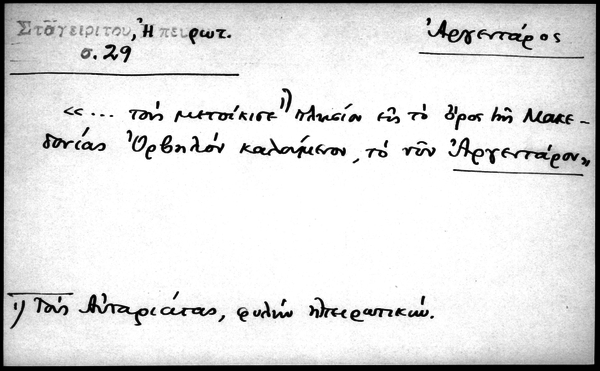 Σταγειρίτου, Ἡ πειρωτ.
σ. 29
Ἀργεντάρος
«... τούς μετοίκισε 1) πλησίον εἰς τό ὄρος τῆς Μακε-
δονίας Ὀρβηλόν καλούμενον, τό νῦν Ἀργεντάρον»
1) Τούς Αὐταριάτας, φυλήν ἠπειρωτικήν.